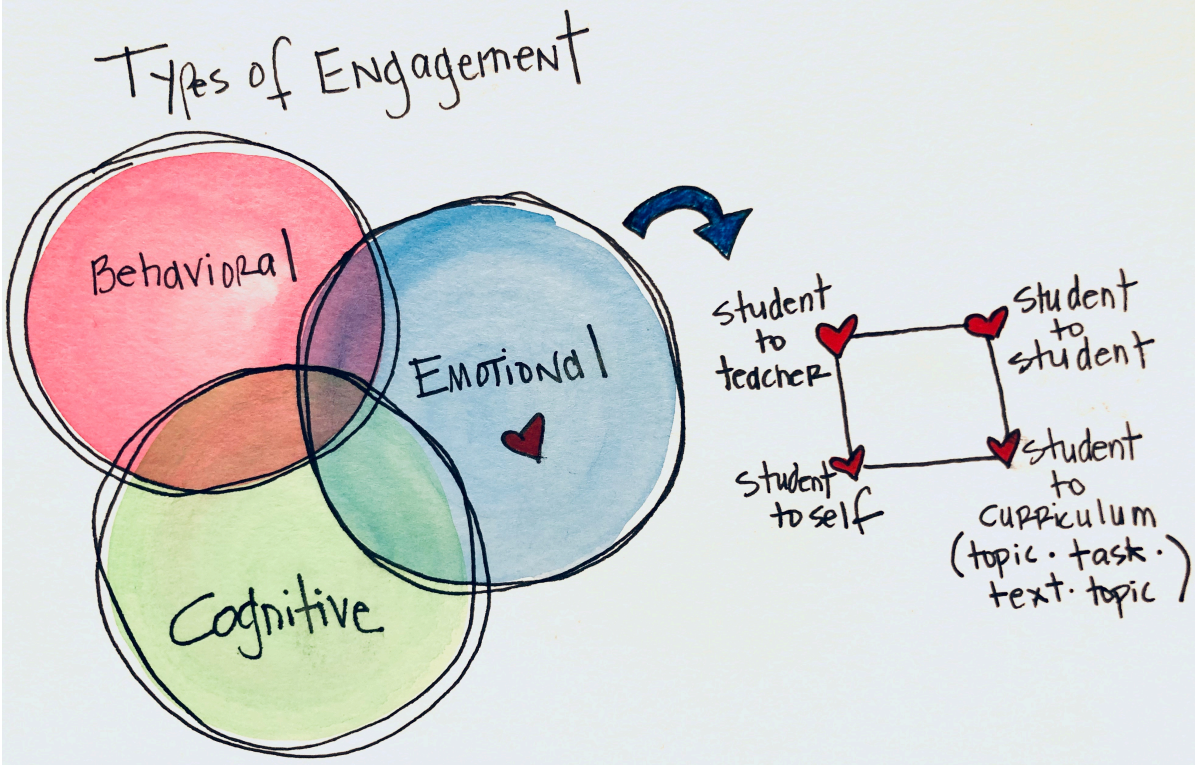 Types of Engagement
Behavioral
Emotional
Cognitive
student
to
teacher
student
to
student
student
to self
student
to
curriculum
(topic · task ·
text · topic)